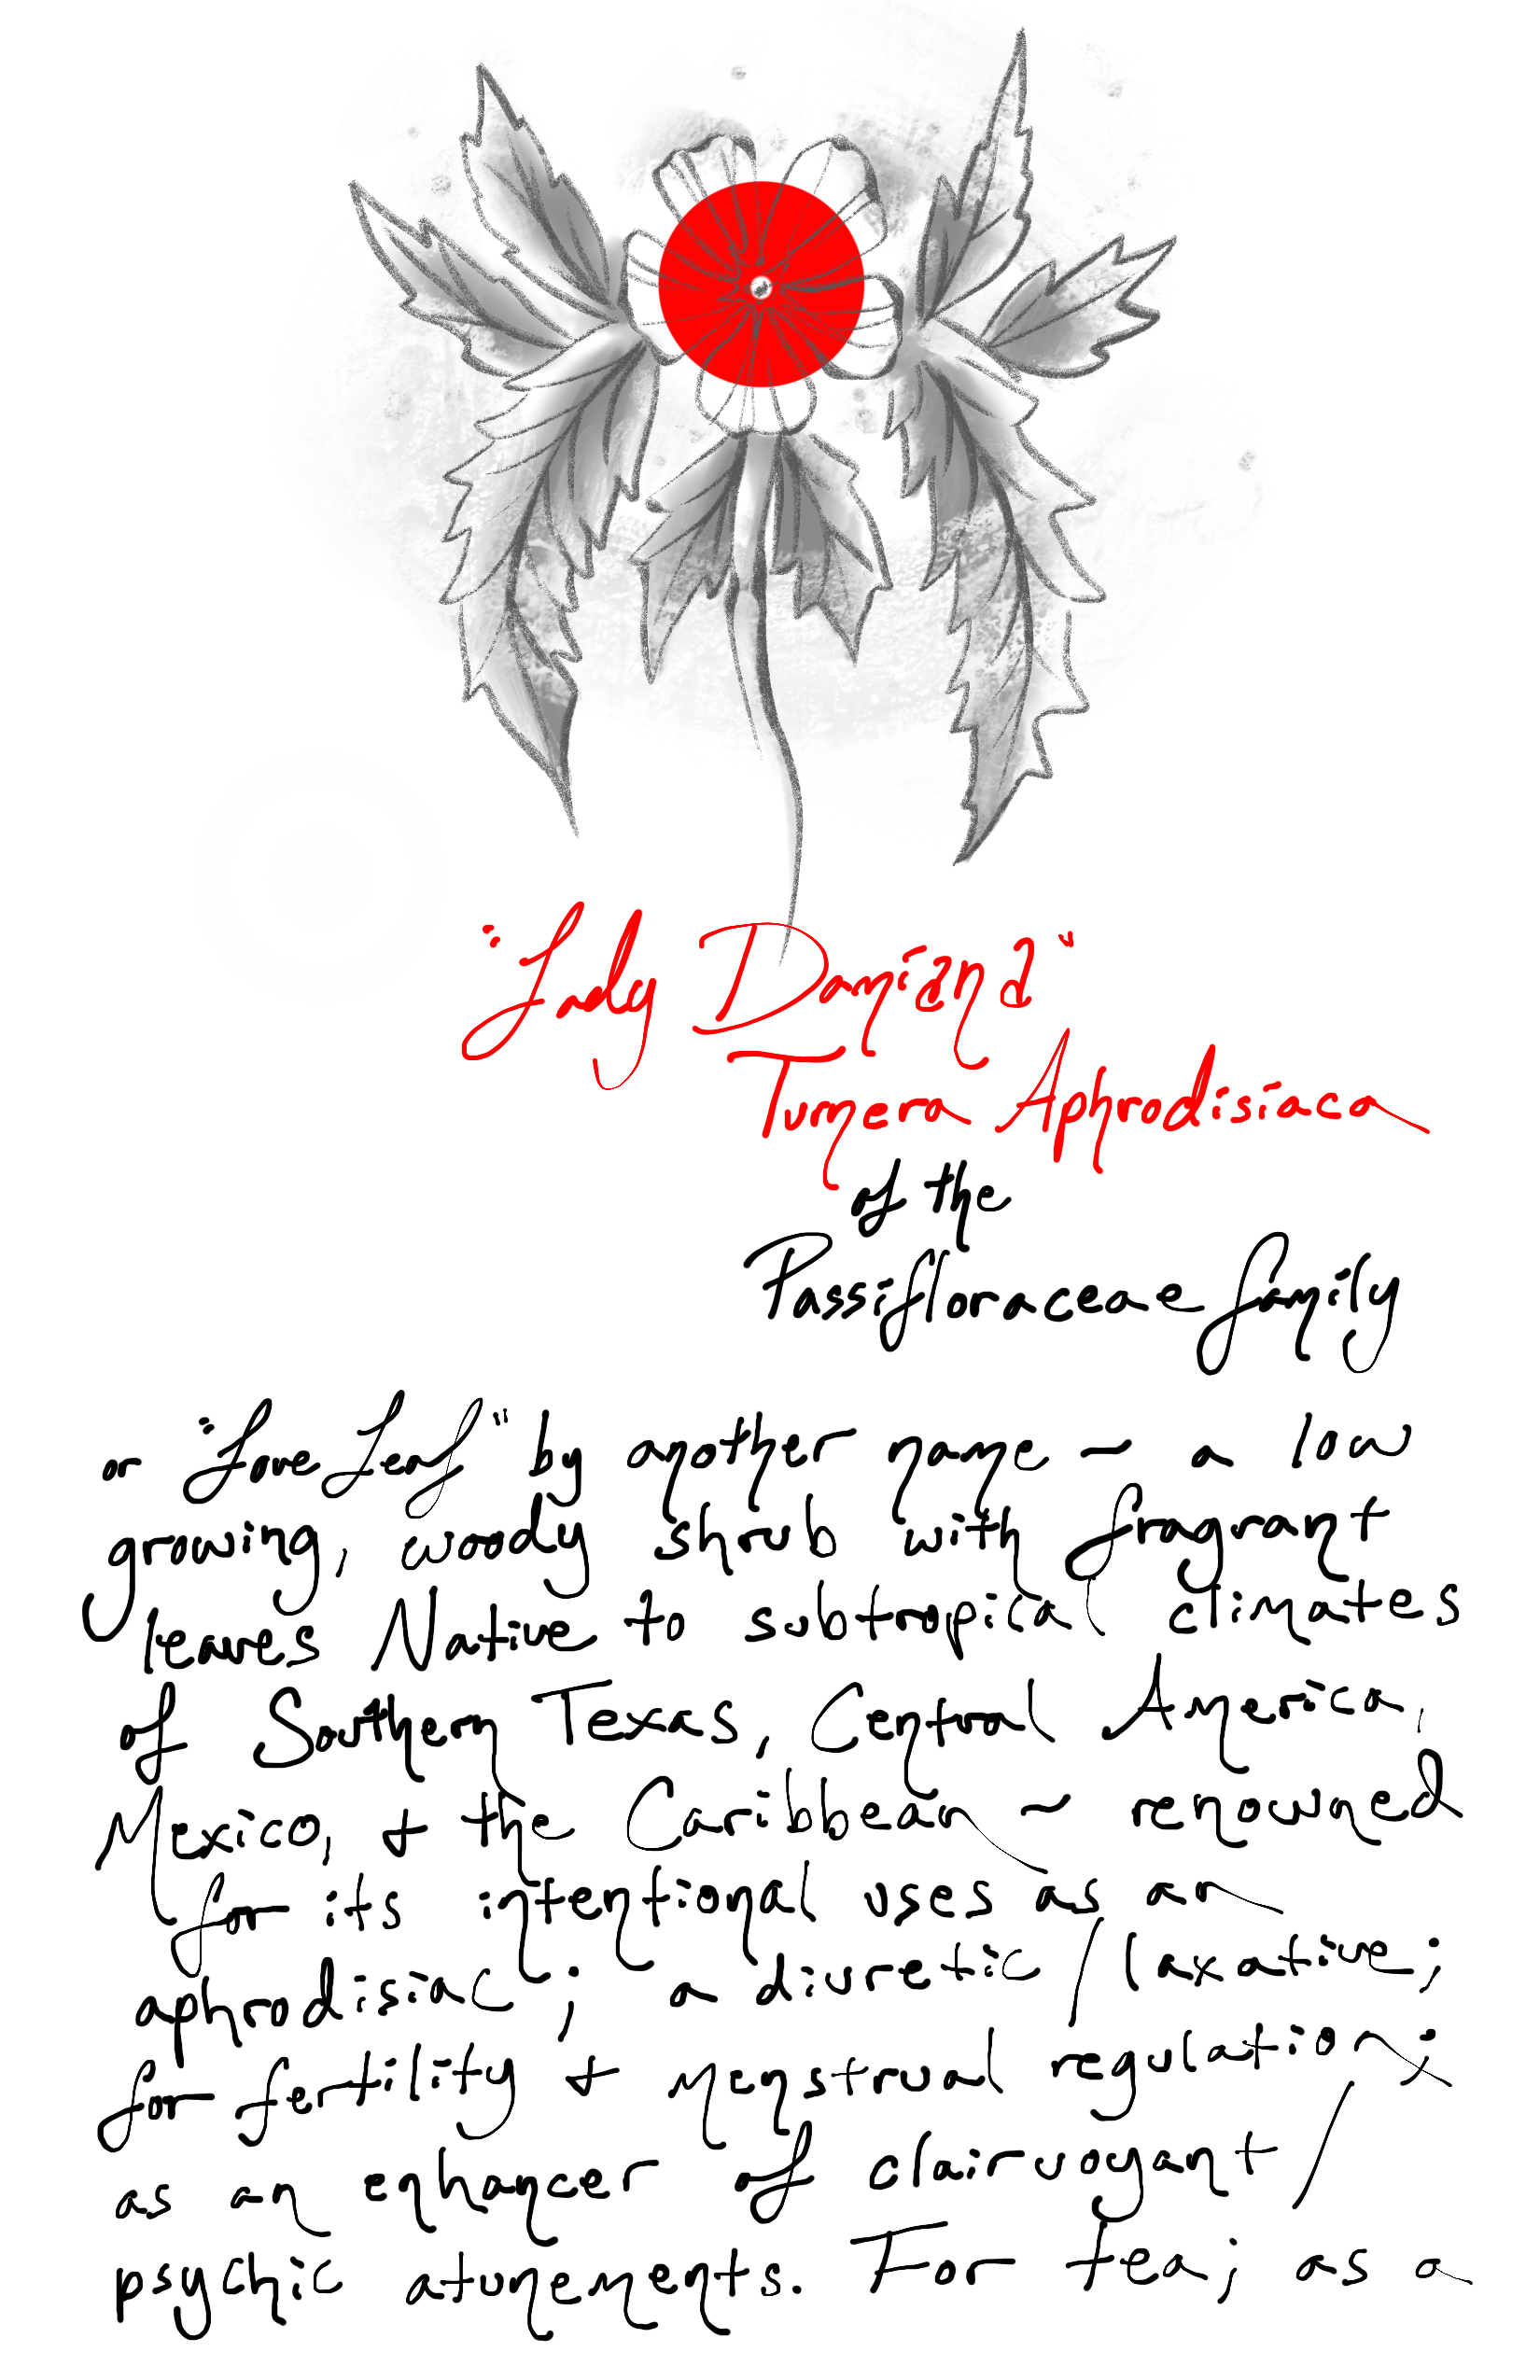 "Lady Damiana"
Turnera Aphrodisiaca
of the
Passifloraceae family
or "Love Leaf" by another name ~ a low
growing, woody shrub with fragrant
leaves Native to subtropical climates
of Southern Texas, Central America,
Mexico, & the Caribbean ~ renowned
for its intentional uses as an
aphrodisiac; a diuretic / laxative;
for fertility & menstrual regulation;
as an enhancer of clairvoyant /
psychic atunements. For tea; as a